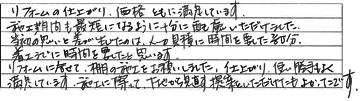 リフォームの仕上がり、価格ともに満足しています。
施工期間も最短になるように十分に配慮いただけました。
当初の思いと差が出たのは、人の見積に時間を要た部分。
着工までに時間を要たと思います。
リフォームに併せて、棚の施工をお願いしました。仕上がり、使い勝手もよく
満足しています。施工に際して、下地から見直す提案をいただけたのもよかったことです。